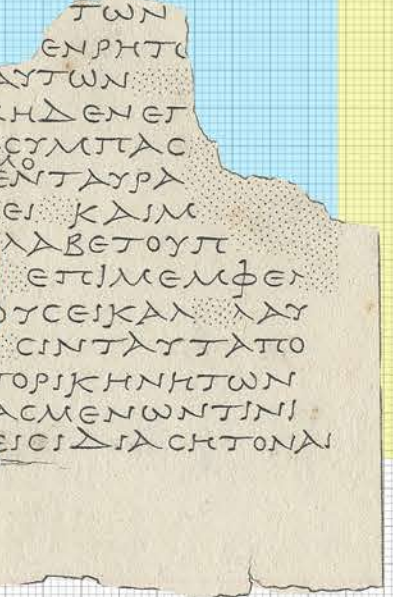 ΤΩΝ
ΕΝΡΗΤΟ
ΑΥΤΩΝ
ΗΔΕΝ ΕΓ
ϹΥΜΠΑϹ
ΛΟ
ΕΝΤΑΥΡΑ
ΕΙ ΚΑΙΜ
ΛΑΒΕΤΟΥΠ
ΕΠΙΜΕΜΦΕΙ
ΟΥϹΕΙΚΑΛ ΛΑΥ
ϹΙΝΤΑΥΤΑΠΟ
ΤΟΡΙΚΗΝΗΤΩΝ
ΑϹΜΕΝΩΝΤΙΝΙ
ΕΙϹΕΙΔΙΑϹΗΤΟΝΑΙ